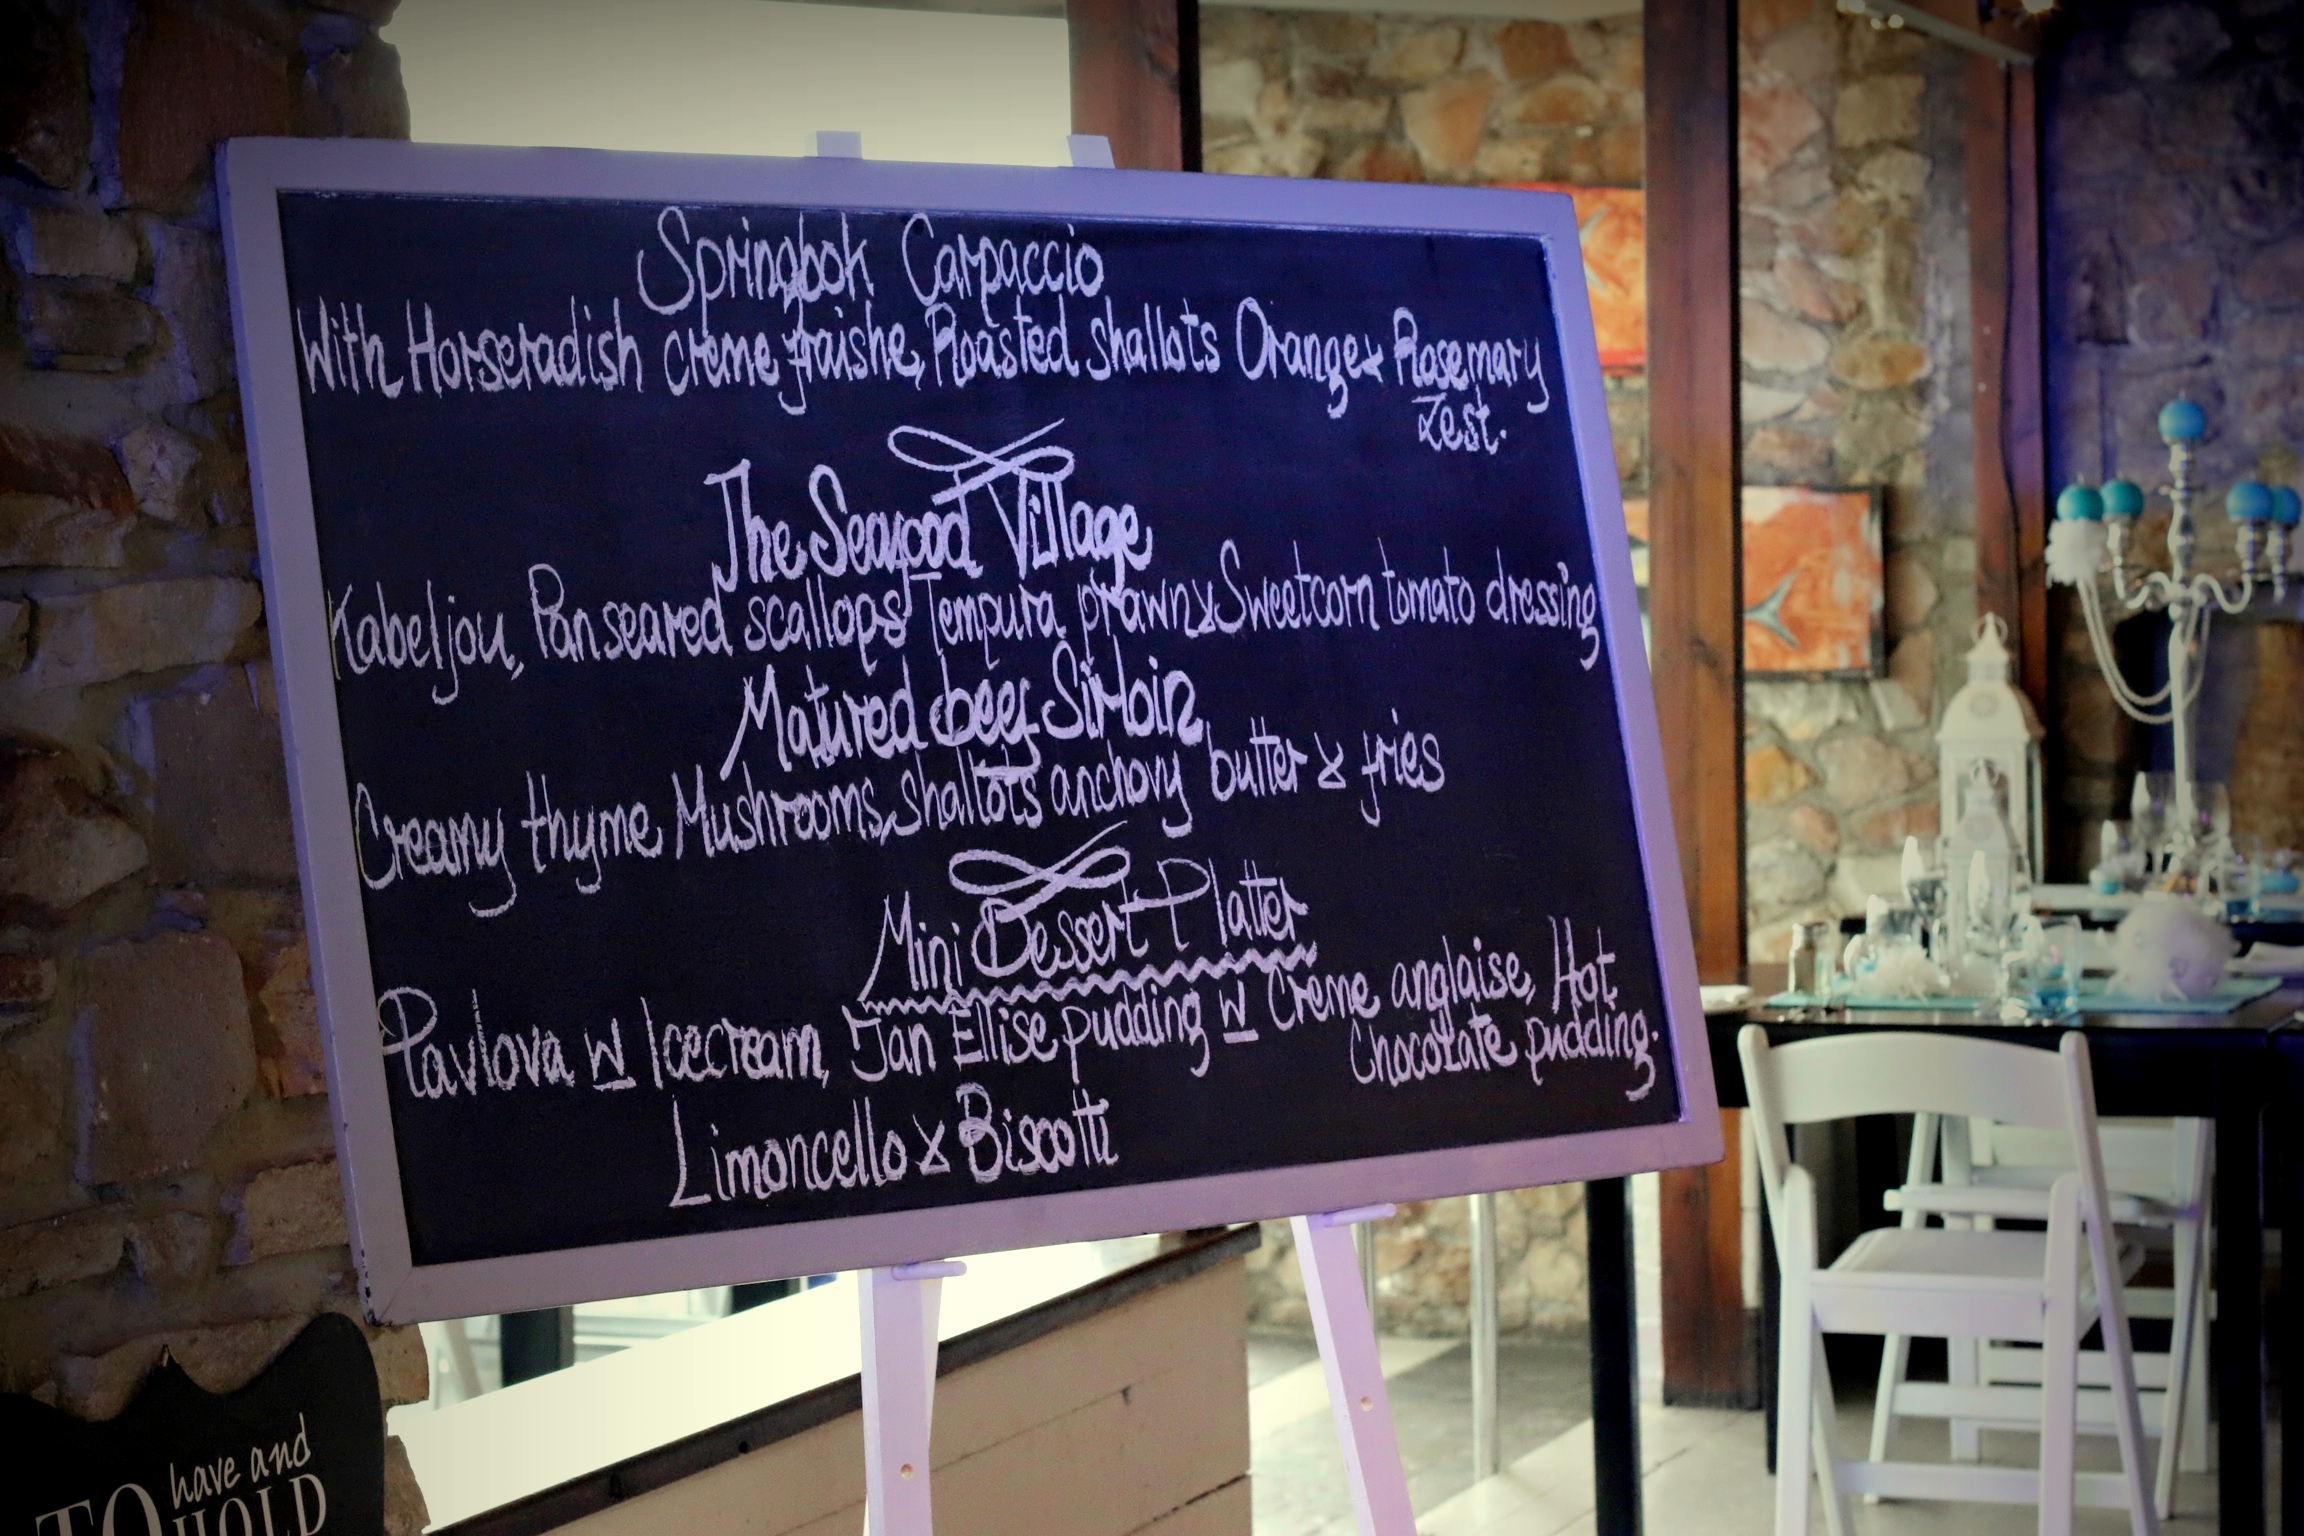 Springbok Carpaccio
With Horseradish creme fraishe, Roasted shallots Orange & Rosemary
Zest.
The Seafood Village
Kabeljou, Pan seared scallops Tempura prawn & Sweetcorn tomato dressing
Matured beef Sirloin
Creamy thyme Mushrooms, shallots anchovy butter & fries
Mini Dessert Platter
Pavlova w Icecream, Jan Ellise pudding w Creme anglaise, Hot
Chocolate pudding.
Limoncello & Biscotti
have and
TO HOLD